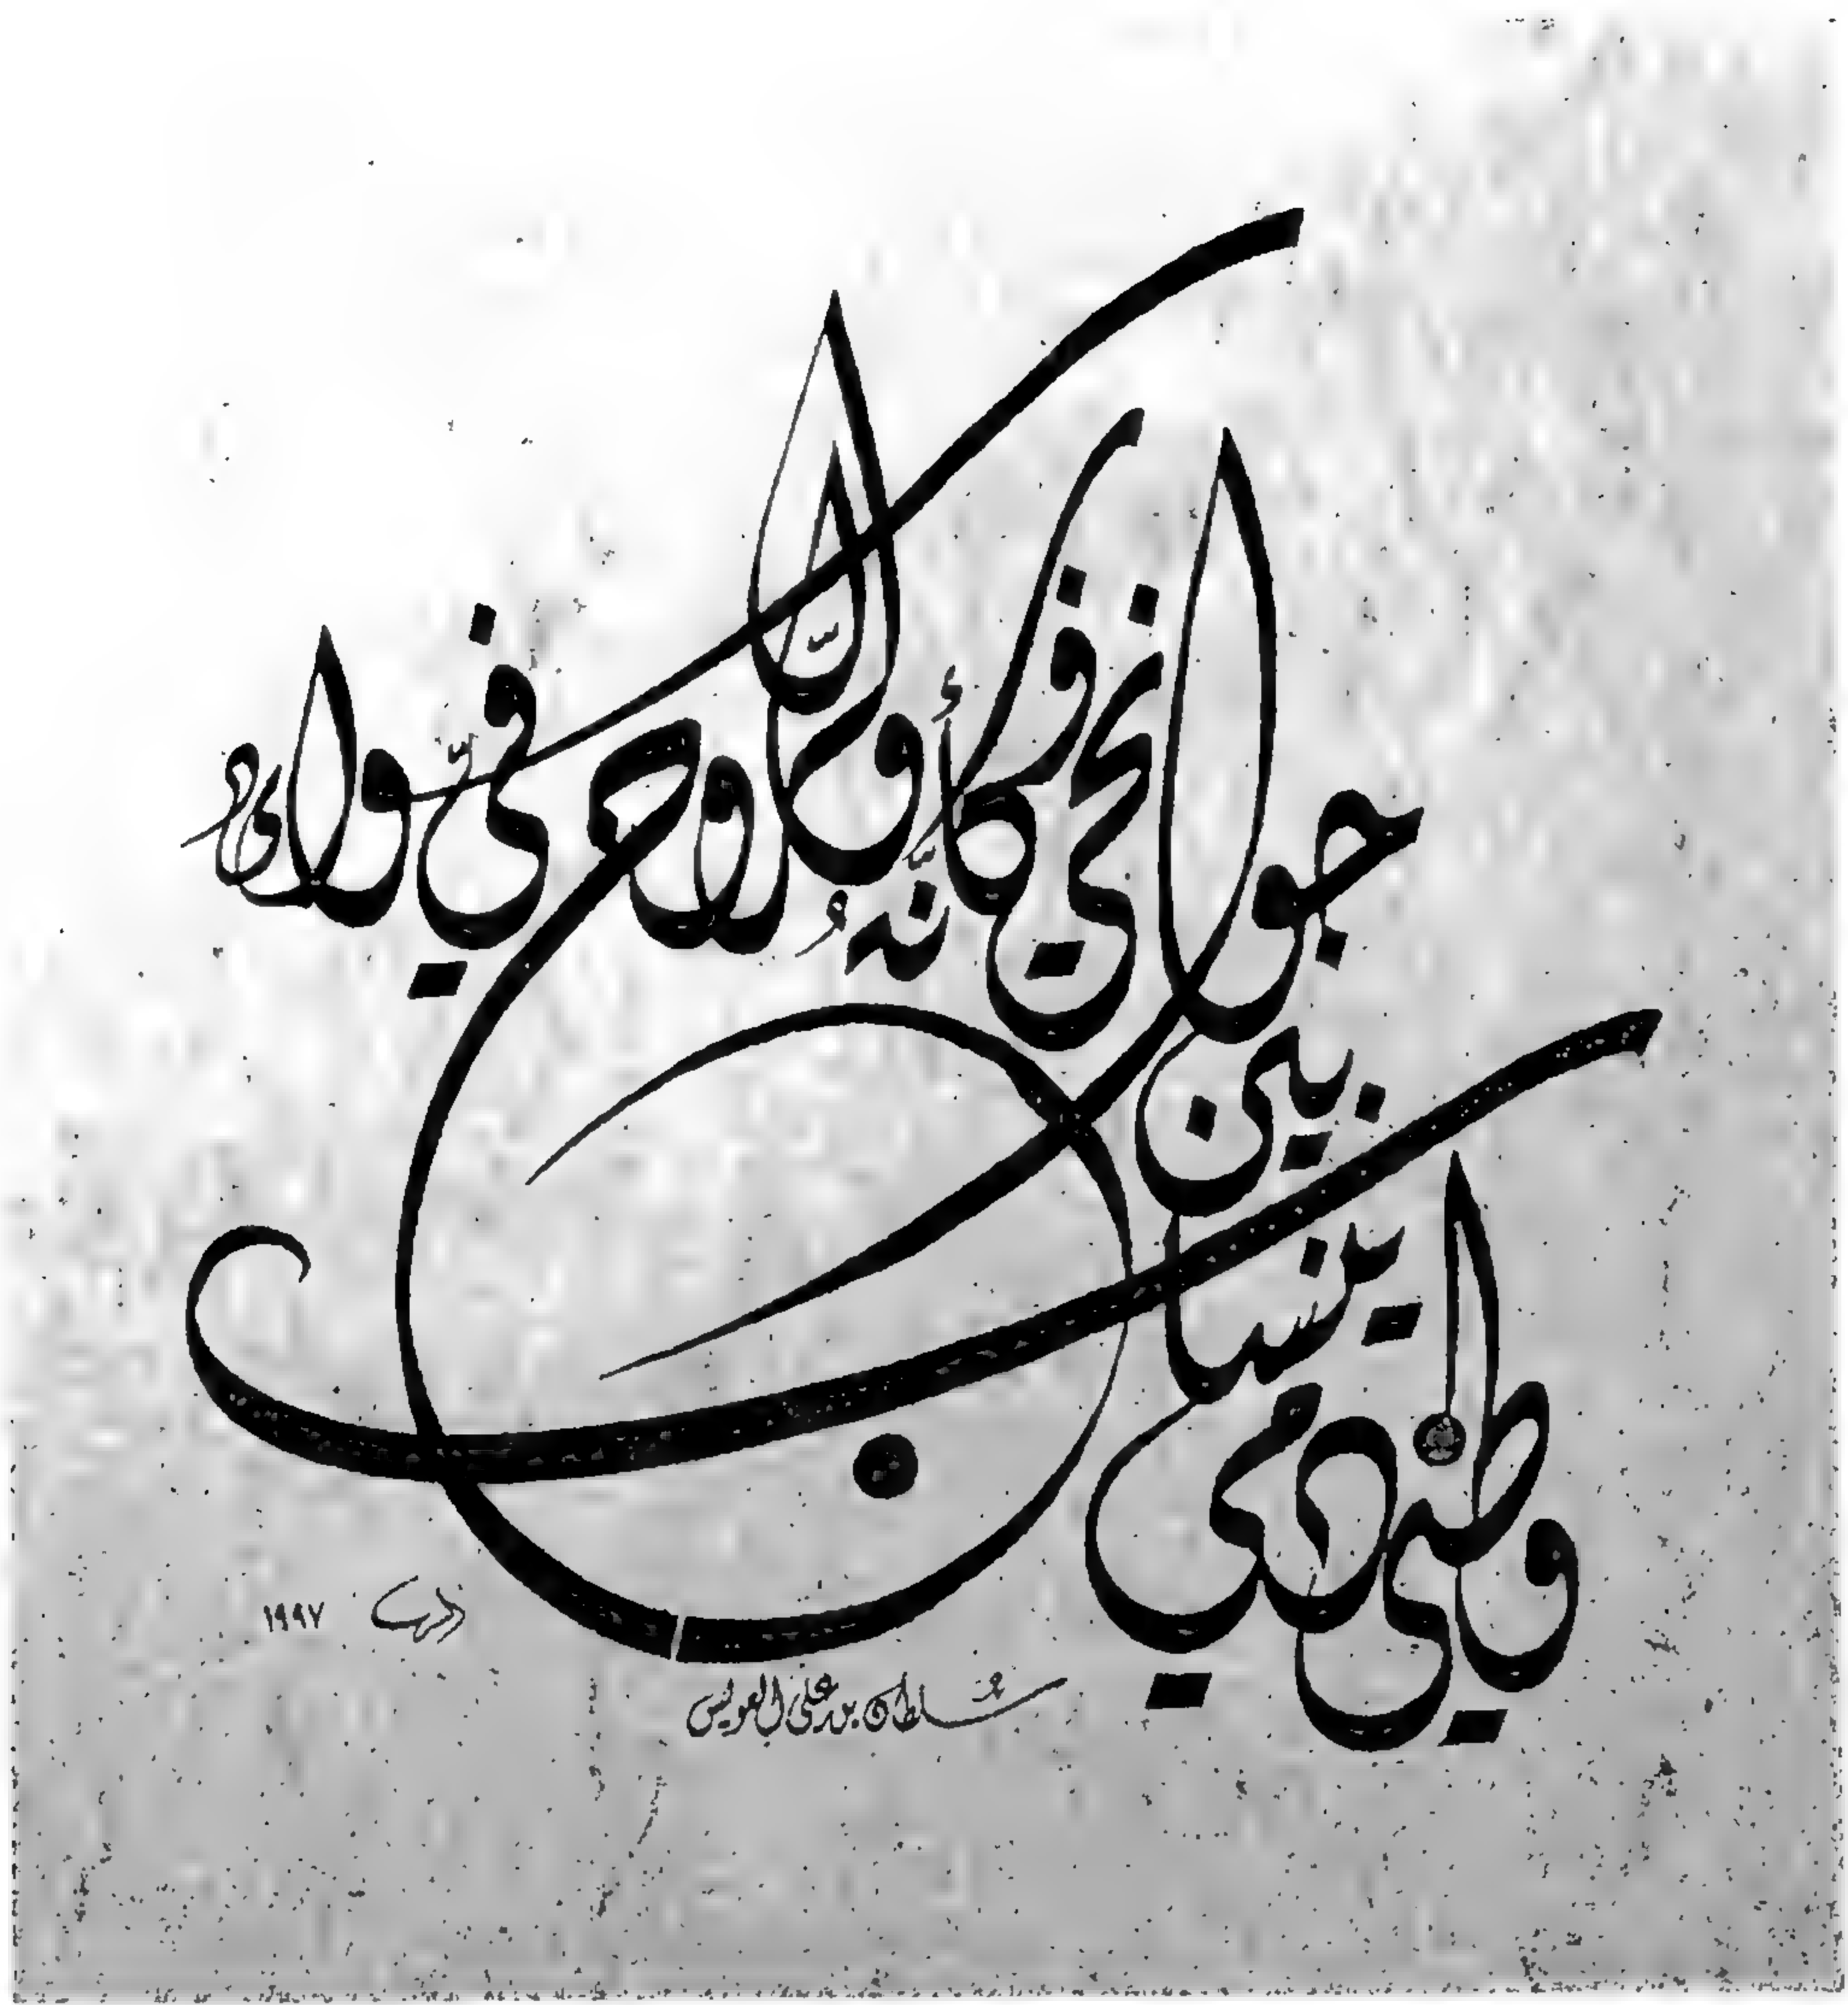 وطني دمي
ينساب
بين
جوانحي فكأنّهُ والرّوح فيّ سواءُ
سلطان بن علي العويس
١٩٩٧